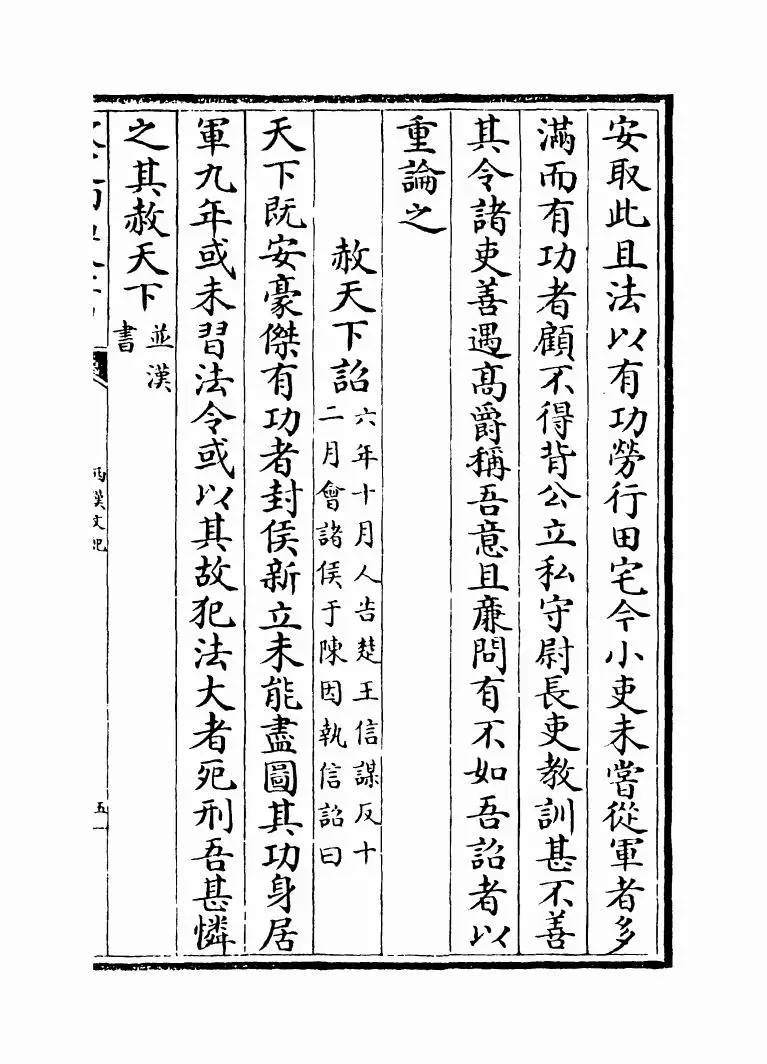 安取此且法以有功勞行田宅今小吏未嘗從軍者多
滿而有功者顧不得背公立私守尉長吏教訓甚不善
其令諸吏善遇髙爵稱吾意且亷問有不如吾詔者以
重論之
赦天下詔六年十月人告楚王信謀反十
二月會諸侯于陳因執信詔曰
天下既安豪傑有功者封侯新立未能盡圖其功身居
軍九年或未習法令或以其故犯法大者死刑吾甚憐
之其赦天下並漢
書
西漢文紀
五